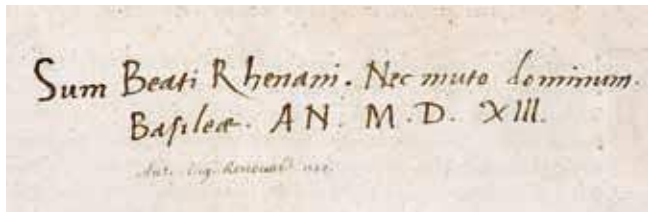 Sum Beati Rhenani. Nec muto dominum.
Basileæ. AN. M.D. XIII.
Ant. Aug.